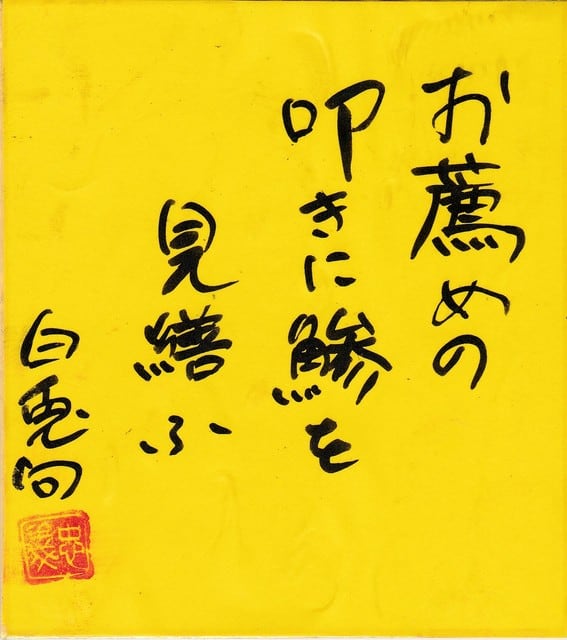 お薦めの
叩きに鯵を
見繕ふ
白兎句